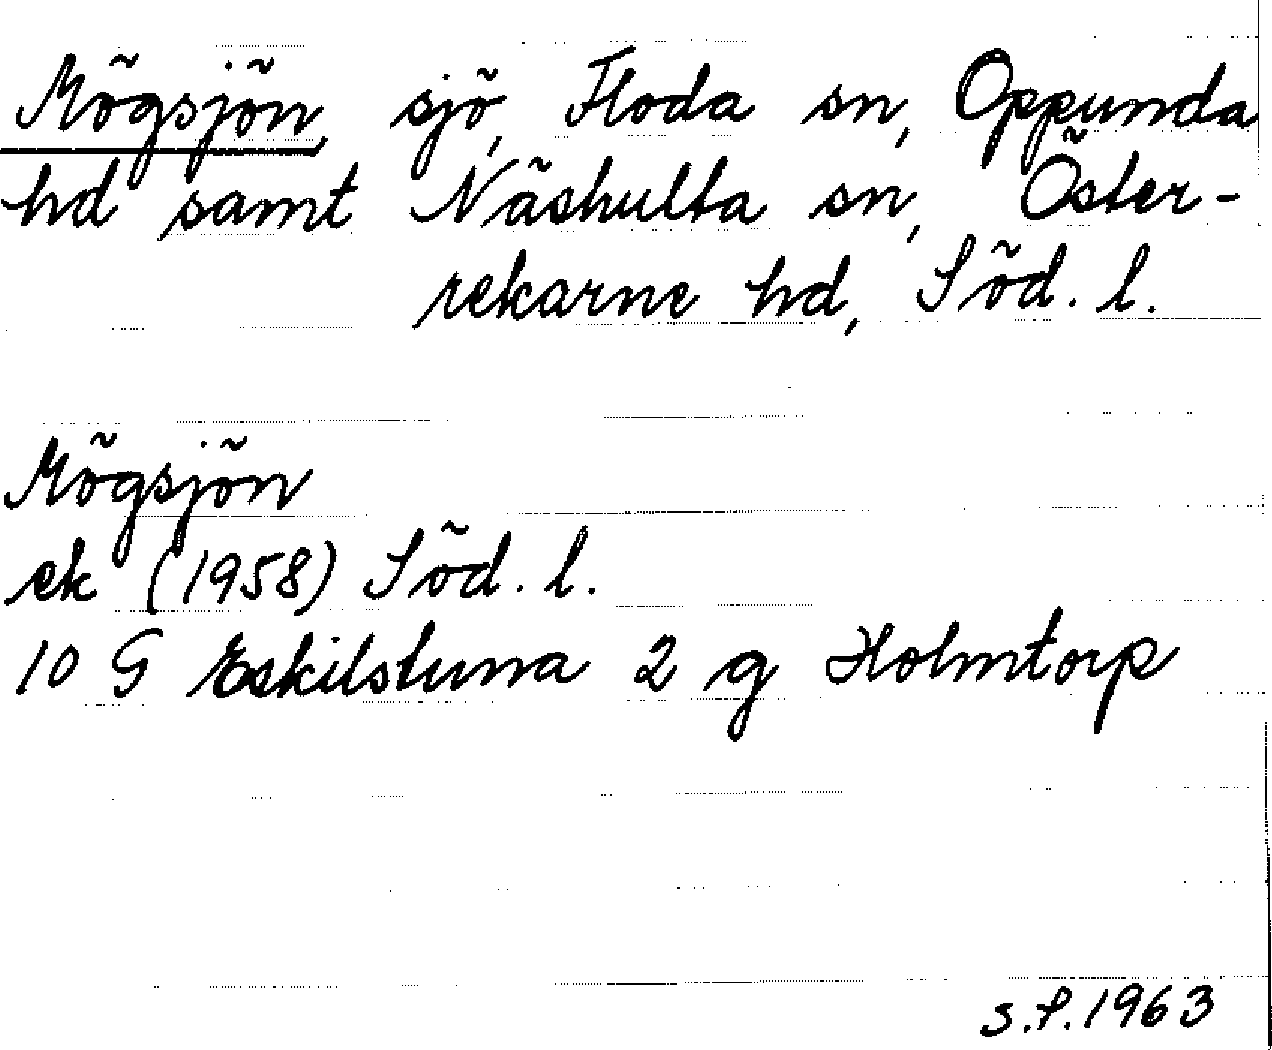 Mögsjön, sjö, Floda sn, Oppunda
hd samt Näshulta sn, Öster-
rekarne hd, Söd. l.
Mögsjön
ek (1958) Söd. l.
10 G Eskilstuna 2 g Holmtorp
s.f. 1963